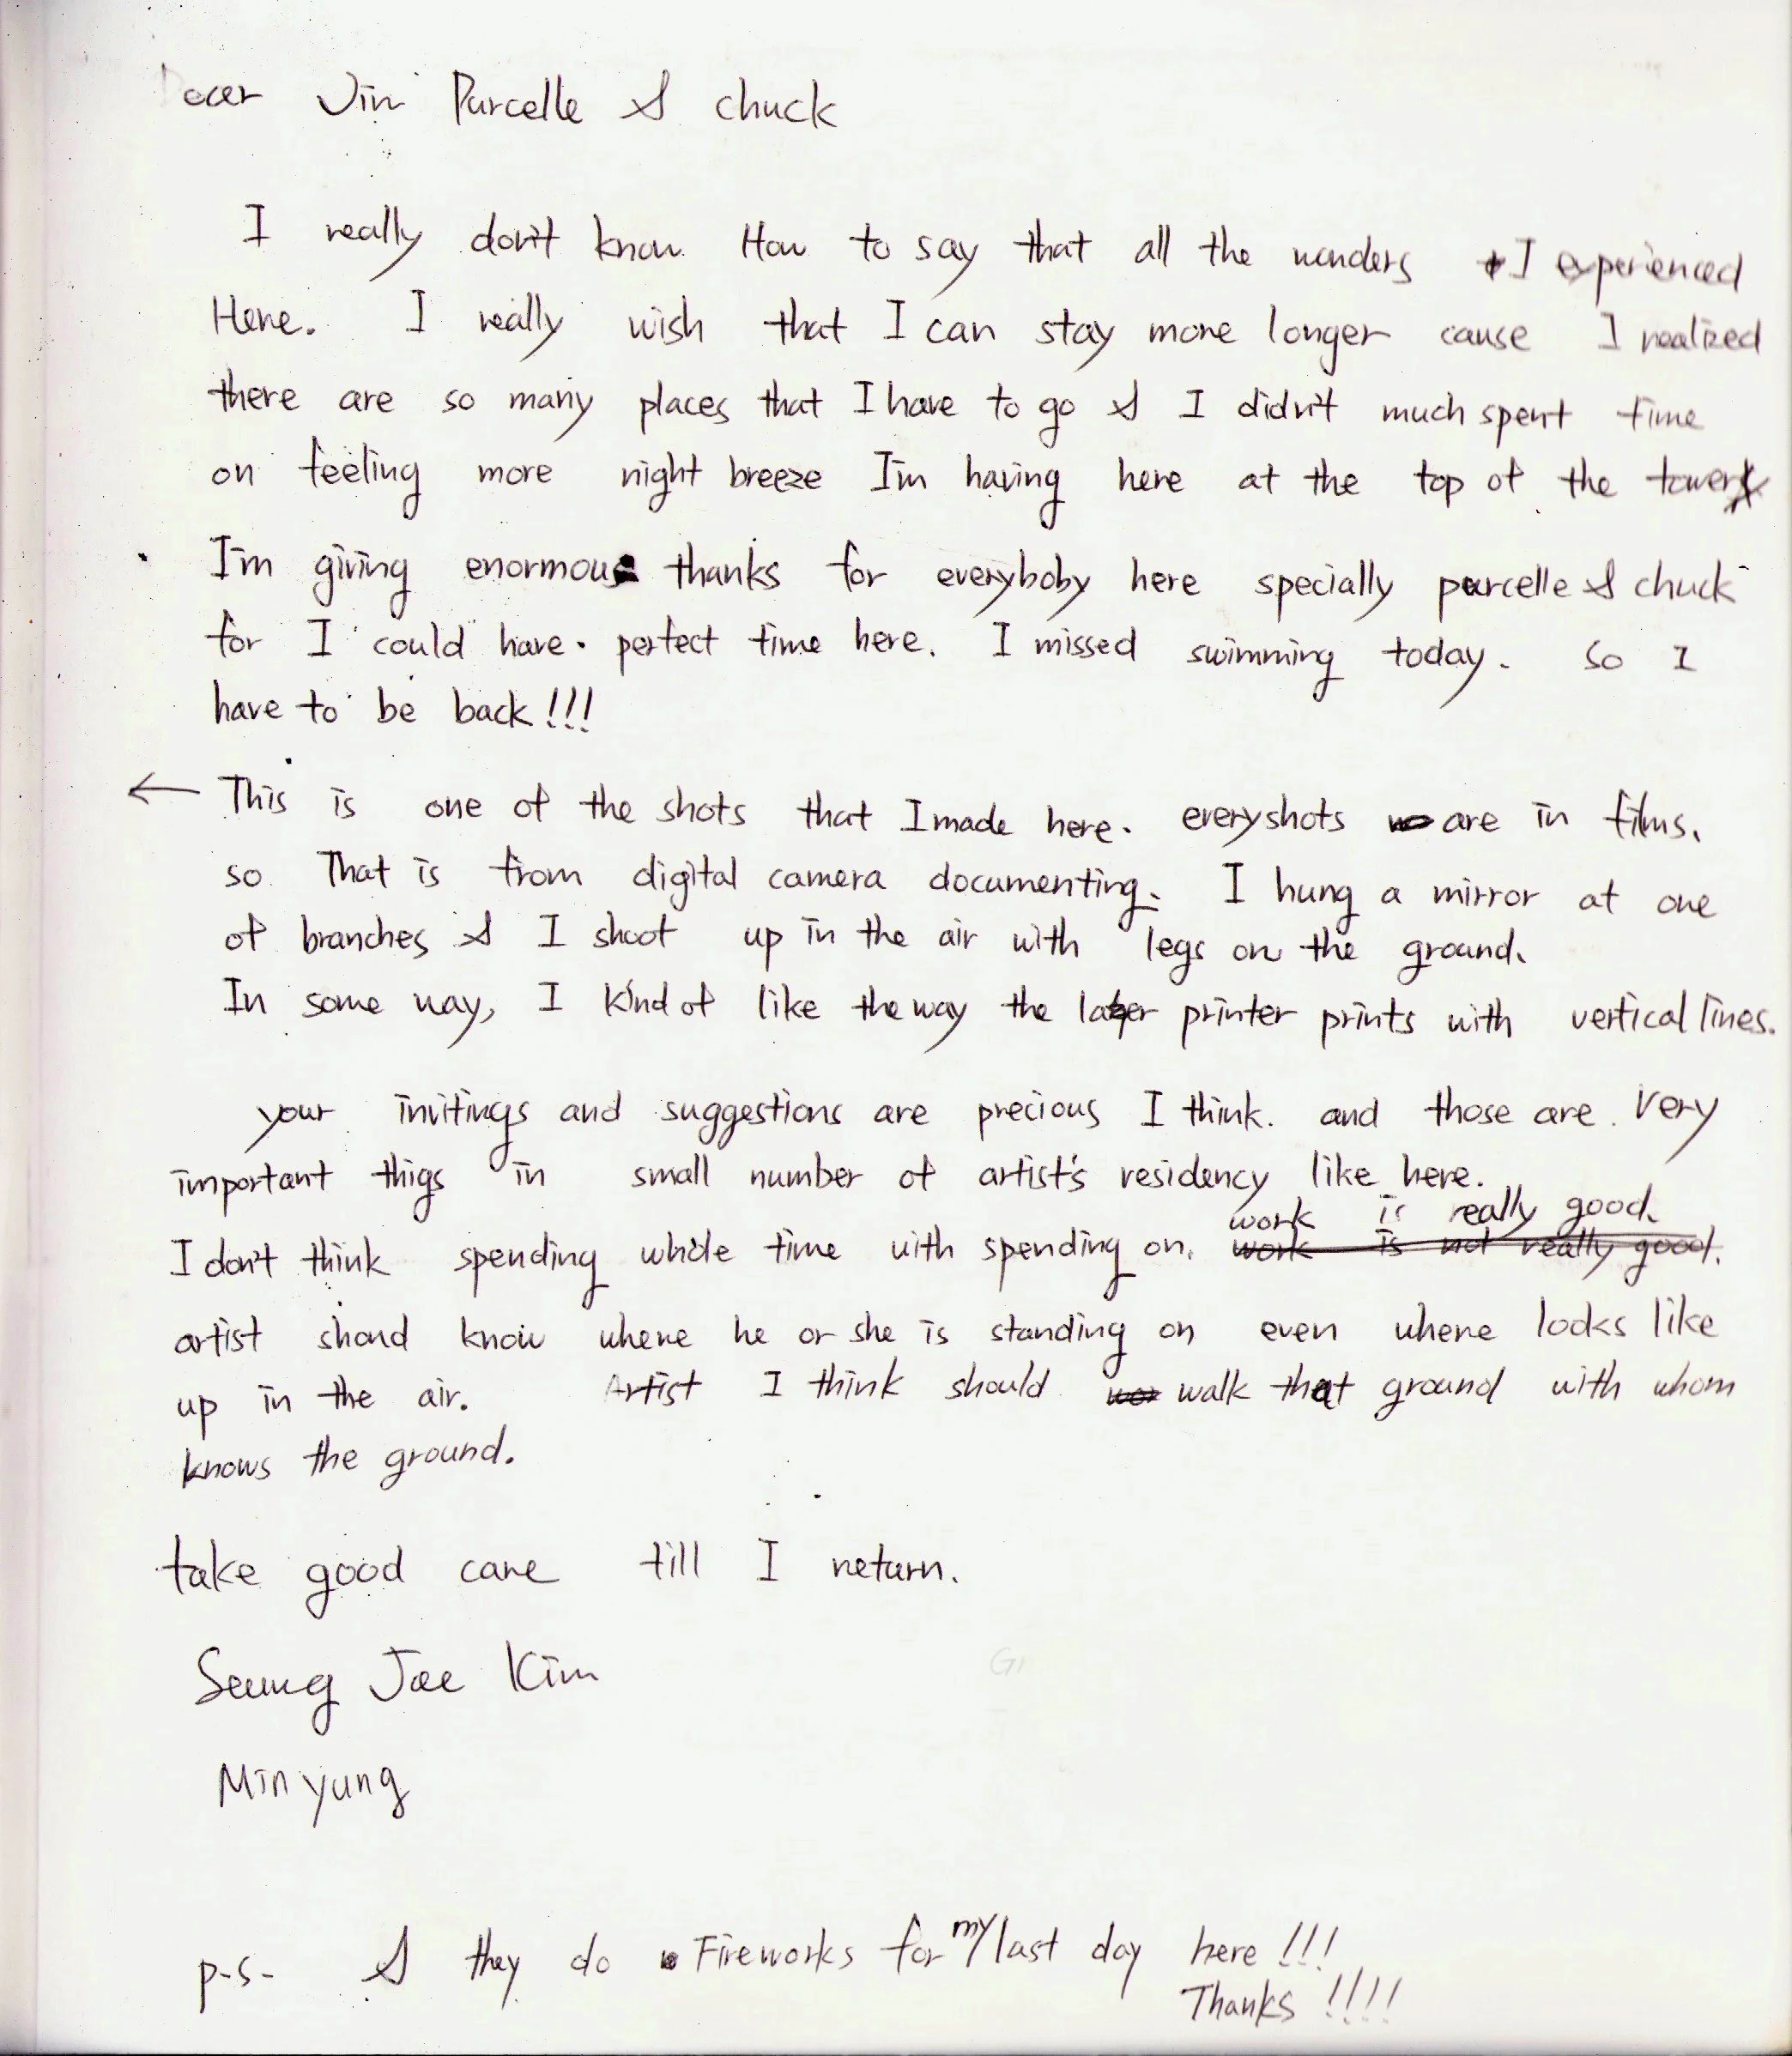 Dear Jin Purcelle & chuck
I really don't know How to say that all the wonders I experienced
Here. I really wish that I can stay more longer cause I realized
there are so many places that I have to go & I didn't much spent time
on feeling more night breeze I'm having here at the top of the tower
I'm giving enormous thanks for everyboby here specially purcelle & chuck
for I could have perfect time here. I missed swimming today. so I
have to be back!!!
← This is one of the shots that I made here. every shots are in films.
so That is from digital camera documenting. I hung a mirror at one
of branches & I shoot up in the air with legs on the ground.
In some way, I kind of like the way the lazer printer prints with vertical lines.
your invitings and suggestions are precious I think. and those are very
important thigs in small number of artist's residency like here.
work is really good.
I don't think spending whole time with spending on. work is not really good.
artist shoud know where he or she is standing on even where looks like
up in the air. Artist I think should walk that ground with whom
knows the ground.
take good care till I return.
Seung Jae Kim
Min yung
p.s. & they do Fireworks for my last day here!!!
Thanks!!!!